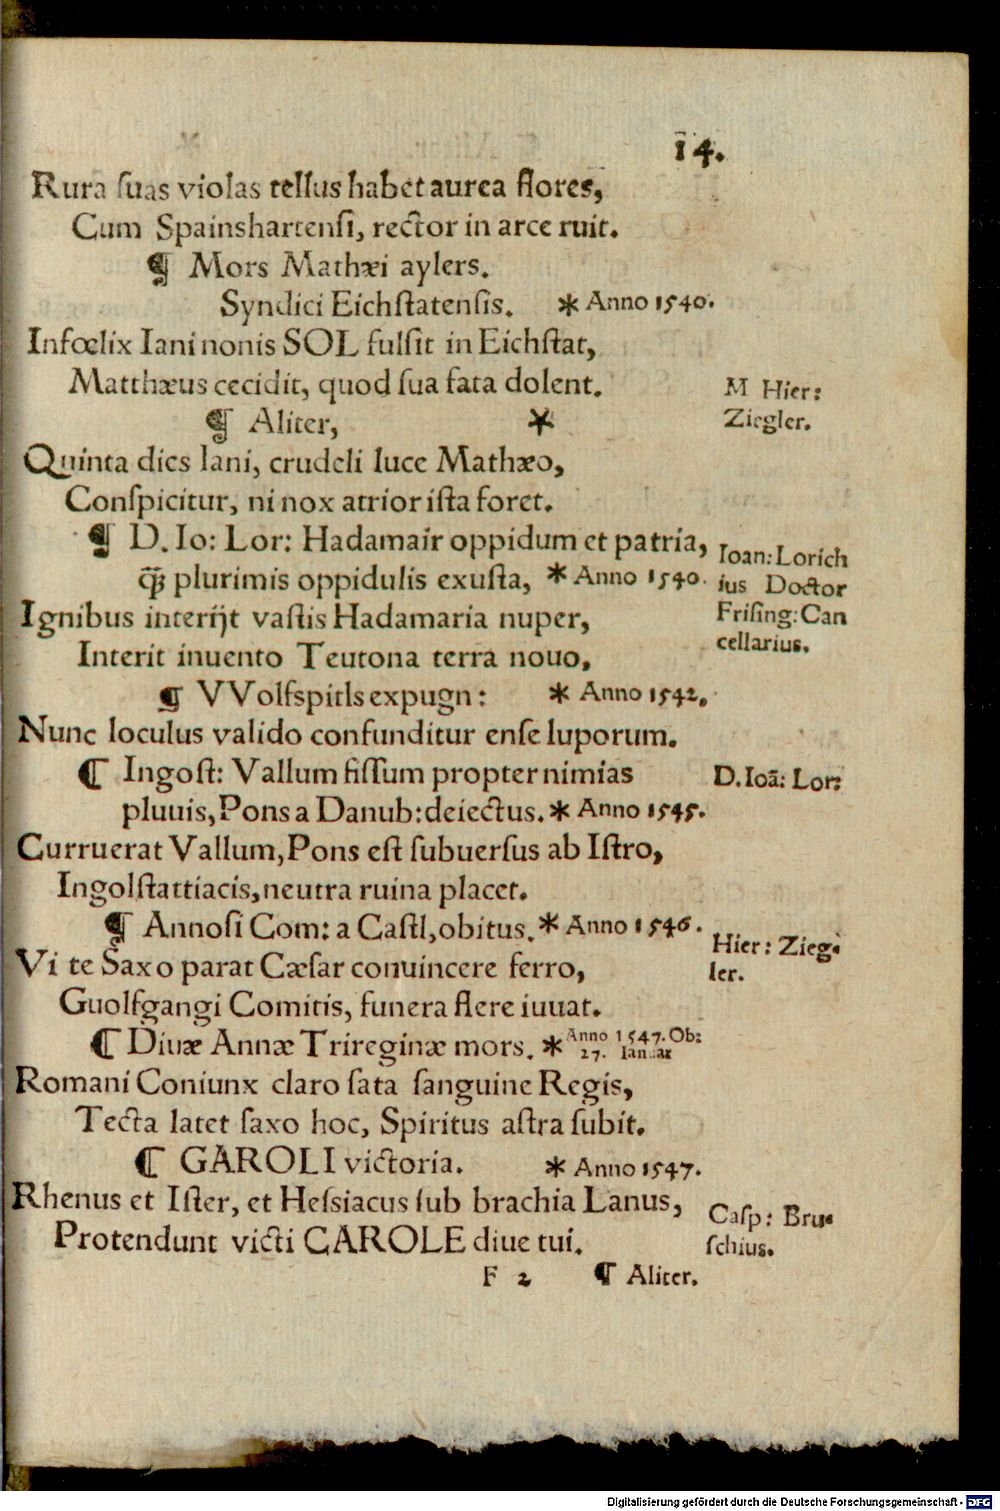 14.
Rura suas violas tellus habet aurea flores,
Cum Spainshartensi, rector in arce ruit.
¶ Mors Mathæi aylers.
Syndici Eichstatensis. * Anno 1540.
Infœlix Iani nonis SOL fulsit in Eichstat,
Matthæus cecidit, quod sua fata dolent.
M Hier:
Ziegler.
¶ Aliter, *
Quinta dies Iani, crudeli luce Mathæo,
Conspicitur, ni nox atrior ista foret.
¶ D. Io: Lor: Hadamair oppidum et patria,
cū plurimis oppidulis exusta, * Anno 1540.
Ioan: Lorich
ius Doctor
Frising: Can
cellarius.
Ignibus interijt vastis Hadamaria nuper,
Interit inuento Teutona terra nouo,
¶ VVolfspitls expugn: * Anno 1542.
Nunc loculus valido confunditur ense luporum.
¶ Ingost: Vallum fissum propter nimias
D. Ioā: Lor:
pluuis, Pons a Danub: deiectus. * Anno 1545.
Curruerat Vallum, Pons est subuersus ab Istro,
Ingolstattiacis, neutra ruina placet.
¶ Annosi Com: a Castl, obitus. * Anno 1546.
Hier: Zieg-
ler.
Vi te Saxo parat Cæsar conuincere ferro,
Guolfgangi Comitis, funera flere iuuat.
¶ Diuæ Annæ Trireginæ mors. * Anno 1547. Ob:
27. Ianuar
Romani Coniunx claro sata sanguine Regis,
Tecta latet saxo hoc, Spiritus astra subit.
¶ GAROLI victoria. * Anno 1547.
Rhenus et Ister, et Hessiacus sub brachia Lanus,
Protendunt victi CAROLE diue tui.
Casp: Bru-
schius.
F 2 ¶ Aliter.
Digitalisierung gefördert durch die Deutsche Forschungsgemeinschaft - DFG